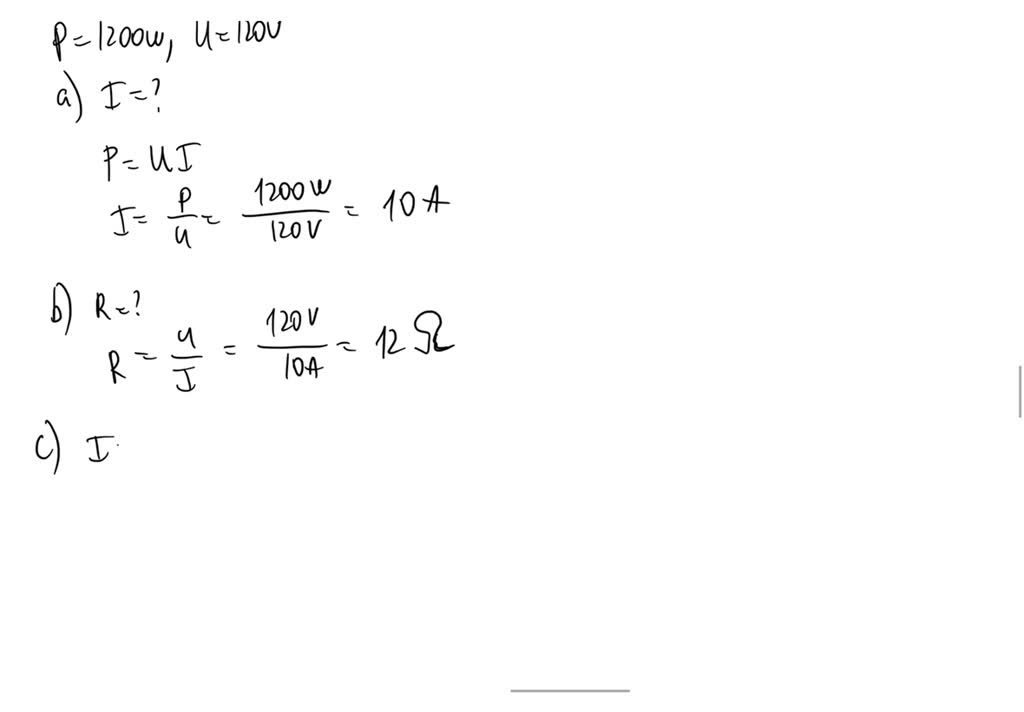 P=1200W, U=120V
a) I=?
P=UI
I= P/U = 1200W/120V = 10A
b) R=?
R = U/I = 120V/10A = 12Ω
c) I